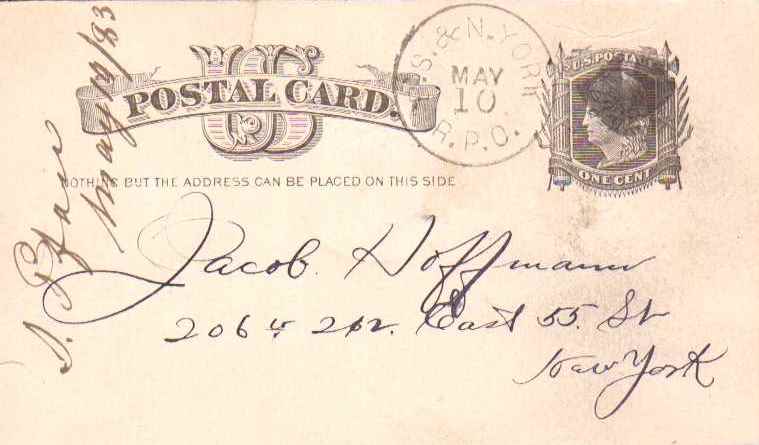 U.S. POSTAGE
ONE CENT
US
POSTAL CARD.
S. & N. YORK
MAY
10
R.P.O.
NOTHING BUT THE ADDRESS CAN BE PLACED ON THIS SIDE
Jacob Hoffmann
East 55. St
New York
May 10/83